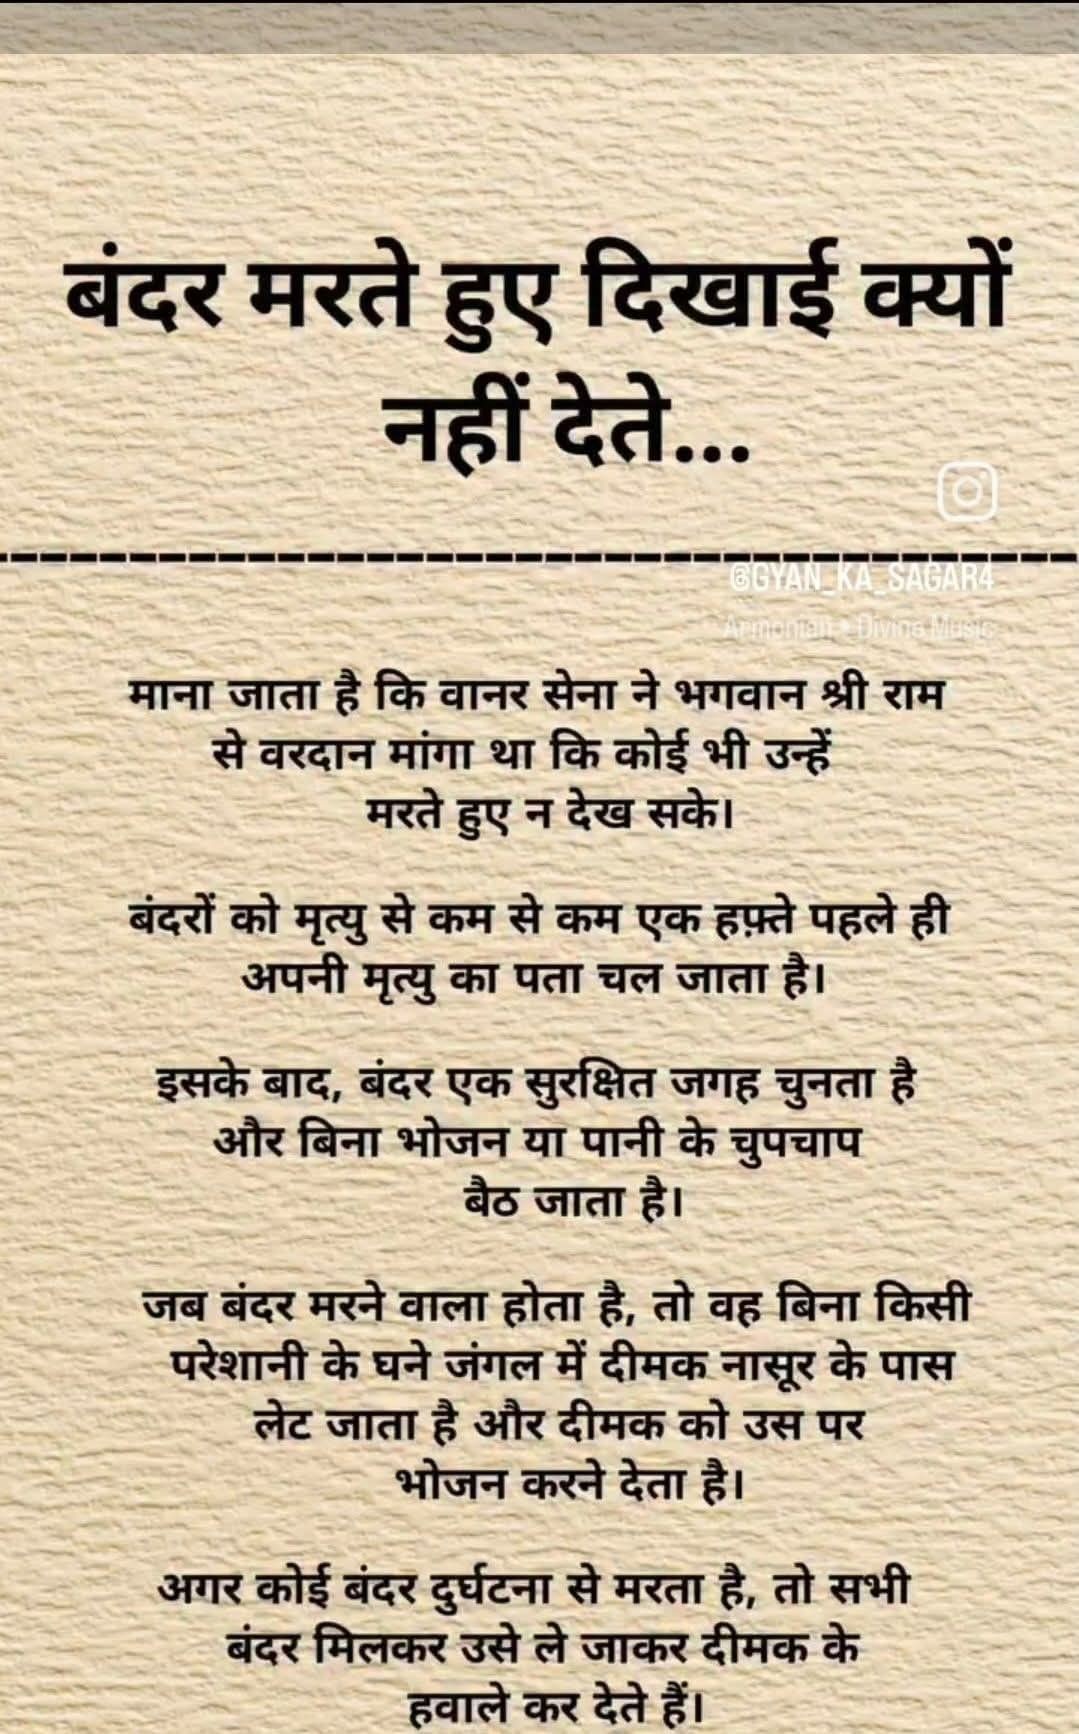 बंदर मरते हुए दिखाई क्यों
नहीं देते...
@GYAN_KA_SAGAR4
Armonian • Divine Music
माना जाता है कि वानर सेना ने भगवान श्री राम
से वरदान मांगा था कि कोई भी उन्हें
मरते हुए न देख सके।
बंदरों को मृत्यु से कम से कम एक हफ़्ते पहले ही
अपनी मृत्यु का पता चल जाता है।
इसके बाद, बंदर एक सुरक्षित जगह चुनता है
और बिना भोजन या पानी के चुपचाप
बैठ जाता है।
जब बंदर मरने वाला होता है, तो वह बिना किसी
परेशानी के घने जंगल में दीमक नासूर के पास
लेट जाता है और दीमक को उस पर
भोजन करने देता है।
अगर कोई बंदर दुर्घटना से मरता है, तो सभी
बंदर मिलकर उसे ले जाकर दीमक के
हवाले कर देते हैं।